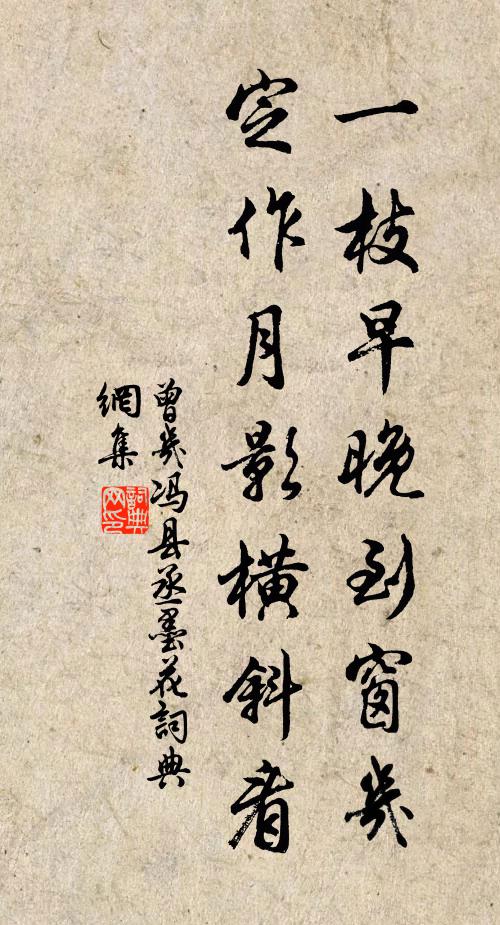 一枝早晚到窗几
定作月影橫斜看
曾几冯县丞墨花詞典
網集
詞典
网印